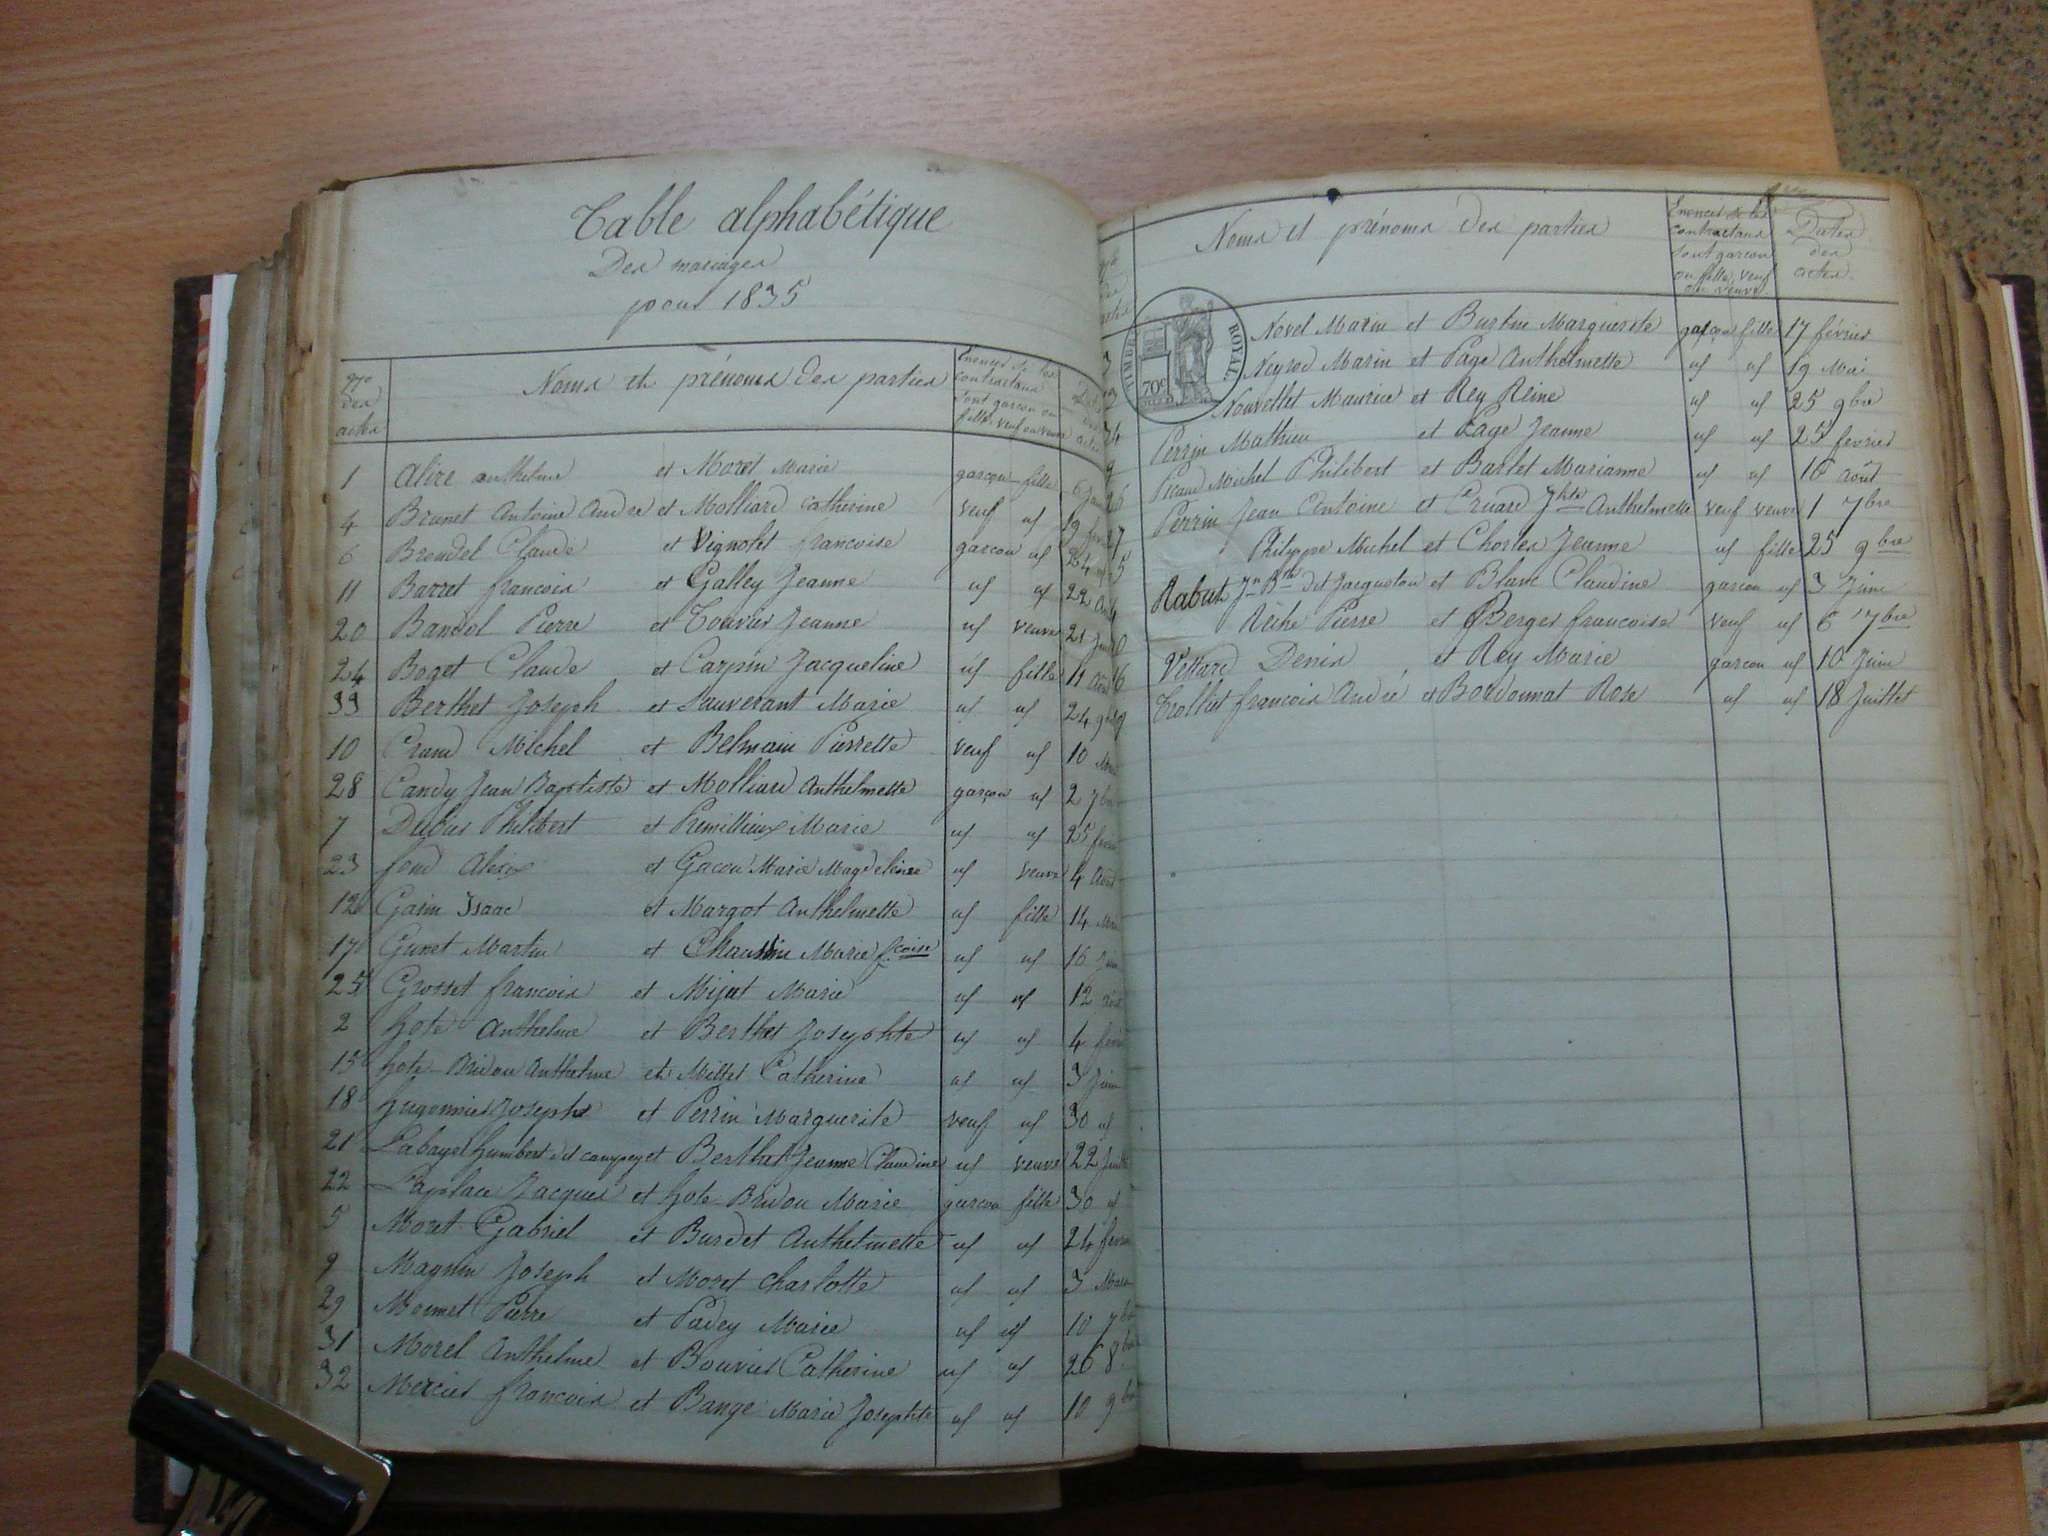 Table alphabétique
Des mariages
pour 1835
Nos des actes Noms et prénoms des parties Enoncés si les contractans sont garçon ou fille, veuf ou veuve
1 Alire anthelme et Moret Marie garçon fille 6
4 Brunet Antoine André et Molliard Catherine veuf id 19
6 Brendel Claude et Vignolet francoise garçon id 24
11 Barret francois et Galley Jeanne id id 22
20 Bandol Pierre et Bouvier Jeanne id veuve 21
24 Boget Claude et Carpin Jacqueline id fille 11
33 Berthet Joseph et Sauverant Marie id id 24
10 Michel et Belmain Pierrette veuf id 10
28 Candy Jean Baptiste et Molliard Anthelmette garçon id 2
7 Philibert et Premillieux Marie id id 25
23 et Gacon Marie Magdeleine id veuve 4
12 Garin Isaac et Margot Anthelmette id fille 14
17 Martin et Marie fcoise id id 16
25 Grosset francois et Mijat Marie id id 12
2 hote Anthelme et Berthet Josephte id id 4
15 hote Bridon Anthelme et Millet Catherine id id 3 Juin
18 hugonnier Joseph et Perrin Marguerite veuf id 30 id
21 Labaye humbert dit et Berthet Jeanne Claudine id veuve 22
22 Laplace Jacques et hote Bridon Marie garçon fille 30 id
5 Moret Gabriel et Burdet Anthelmette id id 24
9 Magnin Joseph et Moret Charlotte id id 3
29 Monnet Pierre et Padey Marie id id 10 7bre
31 Morel Anthelme et Bouvier Catherine id id 26 8bre
32 Mercier francois et Bange Marie Josephte id id 10 9bre
Noms et prénoms des parties Enoncés si les contractans sont garçon ou fille, veuf ou veuve Dates des actes
TIMBRE ROYAL 70c
Novel Marin et Marguerite garçon fille 17 février
Neyrod Marin et Page Anthelmette id id 19 Mai
Nouvellet Maurice et Rey Reine id id 25 9bre
Perrin Mathieu et Page Jeanne id id 25 fevrier
Picaud Michel Philibert et Barlet Marianne id id 16 août
Perrin Jean Antoine et Anthelmette veuf veuve 1 7bre
Philippe Michel et Charles Jeanne id fille 25 9bre
Rabut Jn Bte dit Jacqueton et Blanc Claudine garçon id 3 Juin
Pierre et Berger francoise veuf id 6 7bre
Vettard Denis et Rey Marie garçon id 10 Juin
Trolliet francois André et Bordonnat Rose id id 18 Juillet